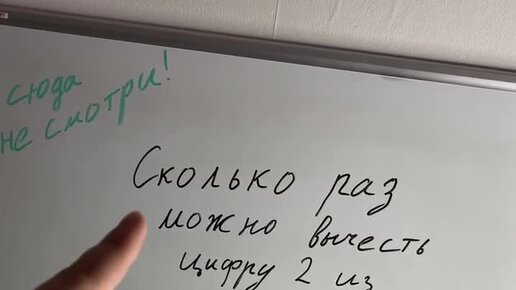 сюда
не смотри!
Сколько раз
можно вычесть
цифру 2 из